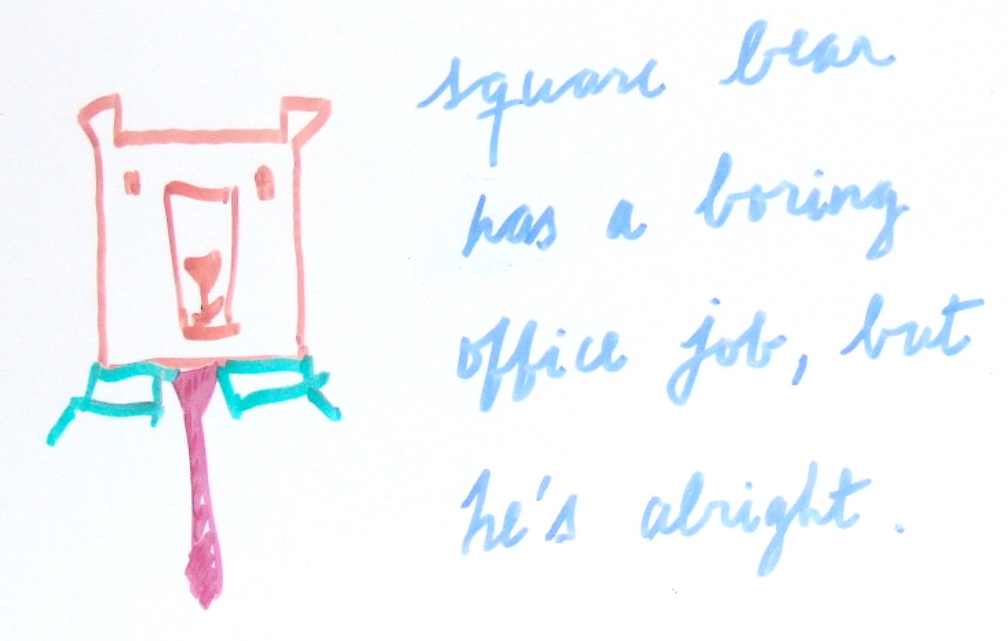 square bear
has a boring
office job, but
he's alright.